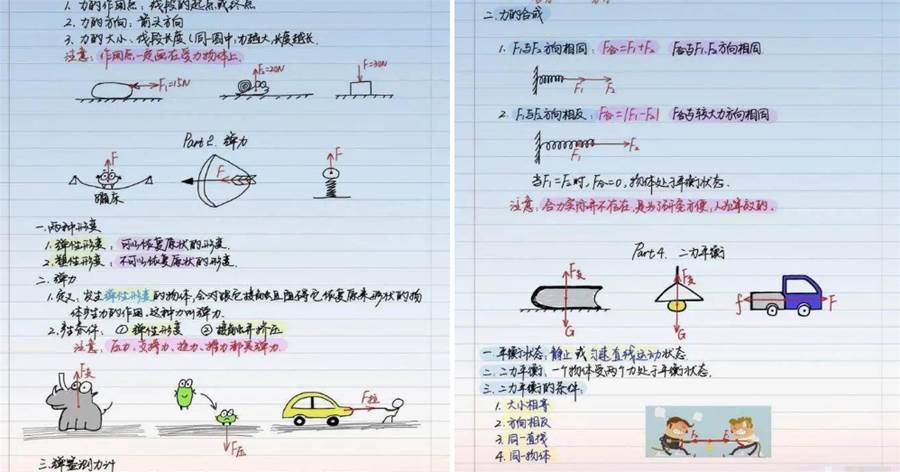 1. 力的作用点：线段的起点或终点
2. 力的方向：箭头方向
3. 力的大小：线段长度（同一图中，力越大，长度越长．
注意：作用点一定画在受力物体上．
F₁=15N
F₂=20N
F=30N
Part 2. 弹力
F
蹦床
F
F
一.两种形变
1. 弹性形变：可以恢复原状的形变．
2. 塑性形变：不可以恢复原状的形变．
二.弹力
1.定义：发生弹性形变的物体，会对跟它接触且阻碍它恢复原来形状的物
体产生力的作用．这种力叫弹力．
2. 条件： ① 弹性形变 ② 接触并挤压
注意：压力、支持力、拉力、推力都是弹力．
F支
F压
F拉
三.弹簧测力计
二.力的合成
1. F₁与F₂方向相同：F合=F₁+F₂ F合与F₁.F₂方向相同．
F₁ F₂
2. F₁与F₂方向相反：F合=|F₁-F₂| F合与较大力方向相同
F₁ F₂
当F₁=F₂时，F合=0，物体处于平衡状态．
注意：合力实际并不存在，是为了研究方便，人为等效的．
Part 4. 二力平衡
F支
G
F拉
G
f F
一.平衡状态：静止或匀速直线运动状态．
二.二力平衡：一个物体受两个力处于平衡状态．
三.二力平衡的条件：
1. 大小相等
2. 方向相反
3. 同一直线
4. 同一物体